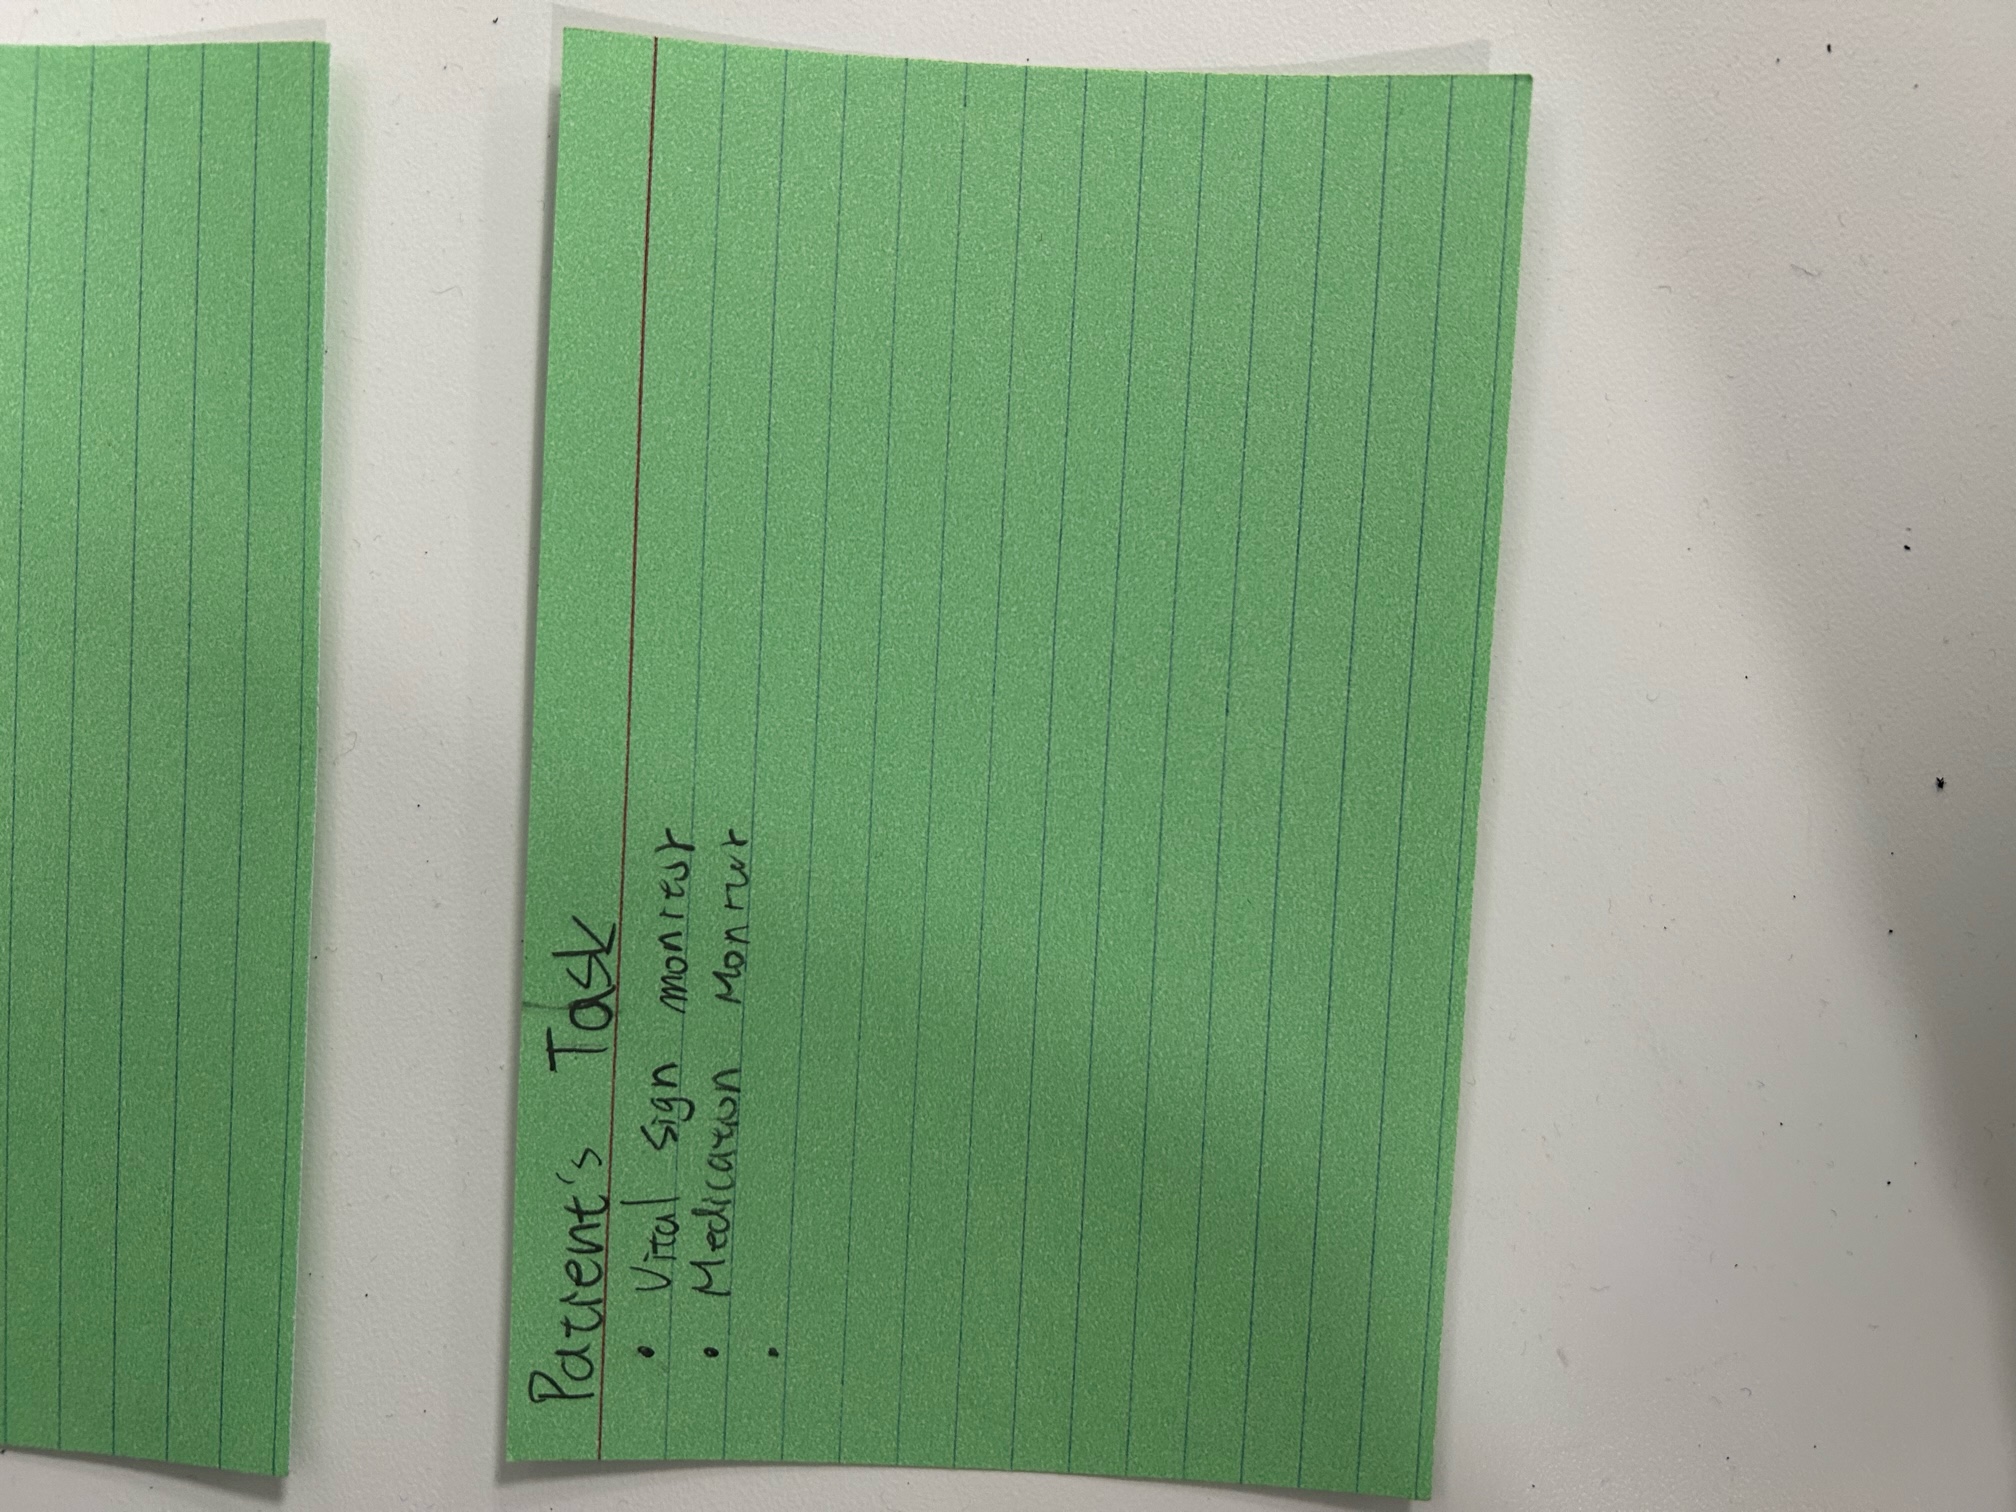 Patient's Task
• Vital sign monitor
• Medication Monitor
•